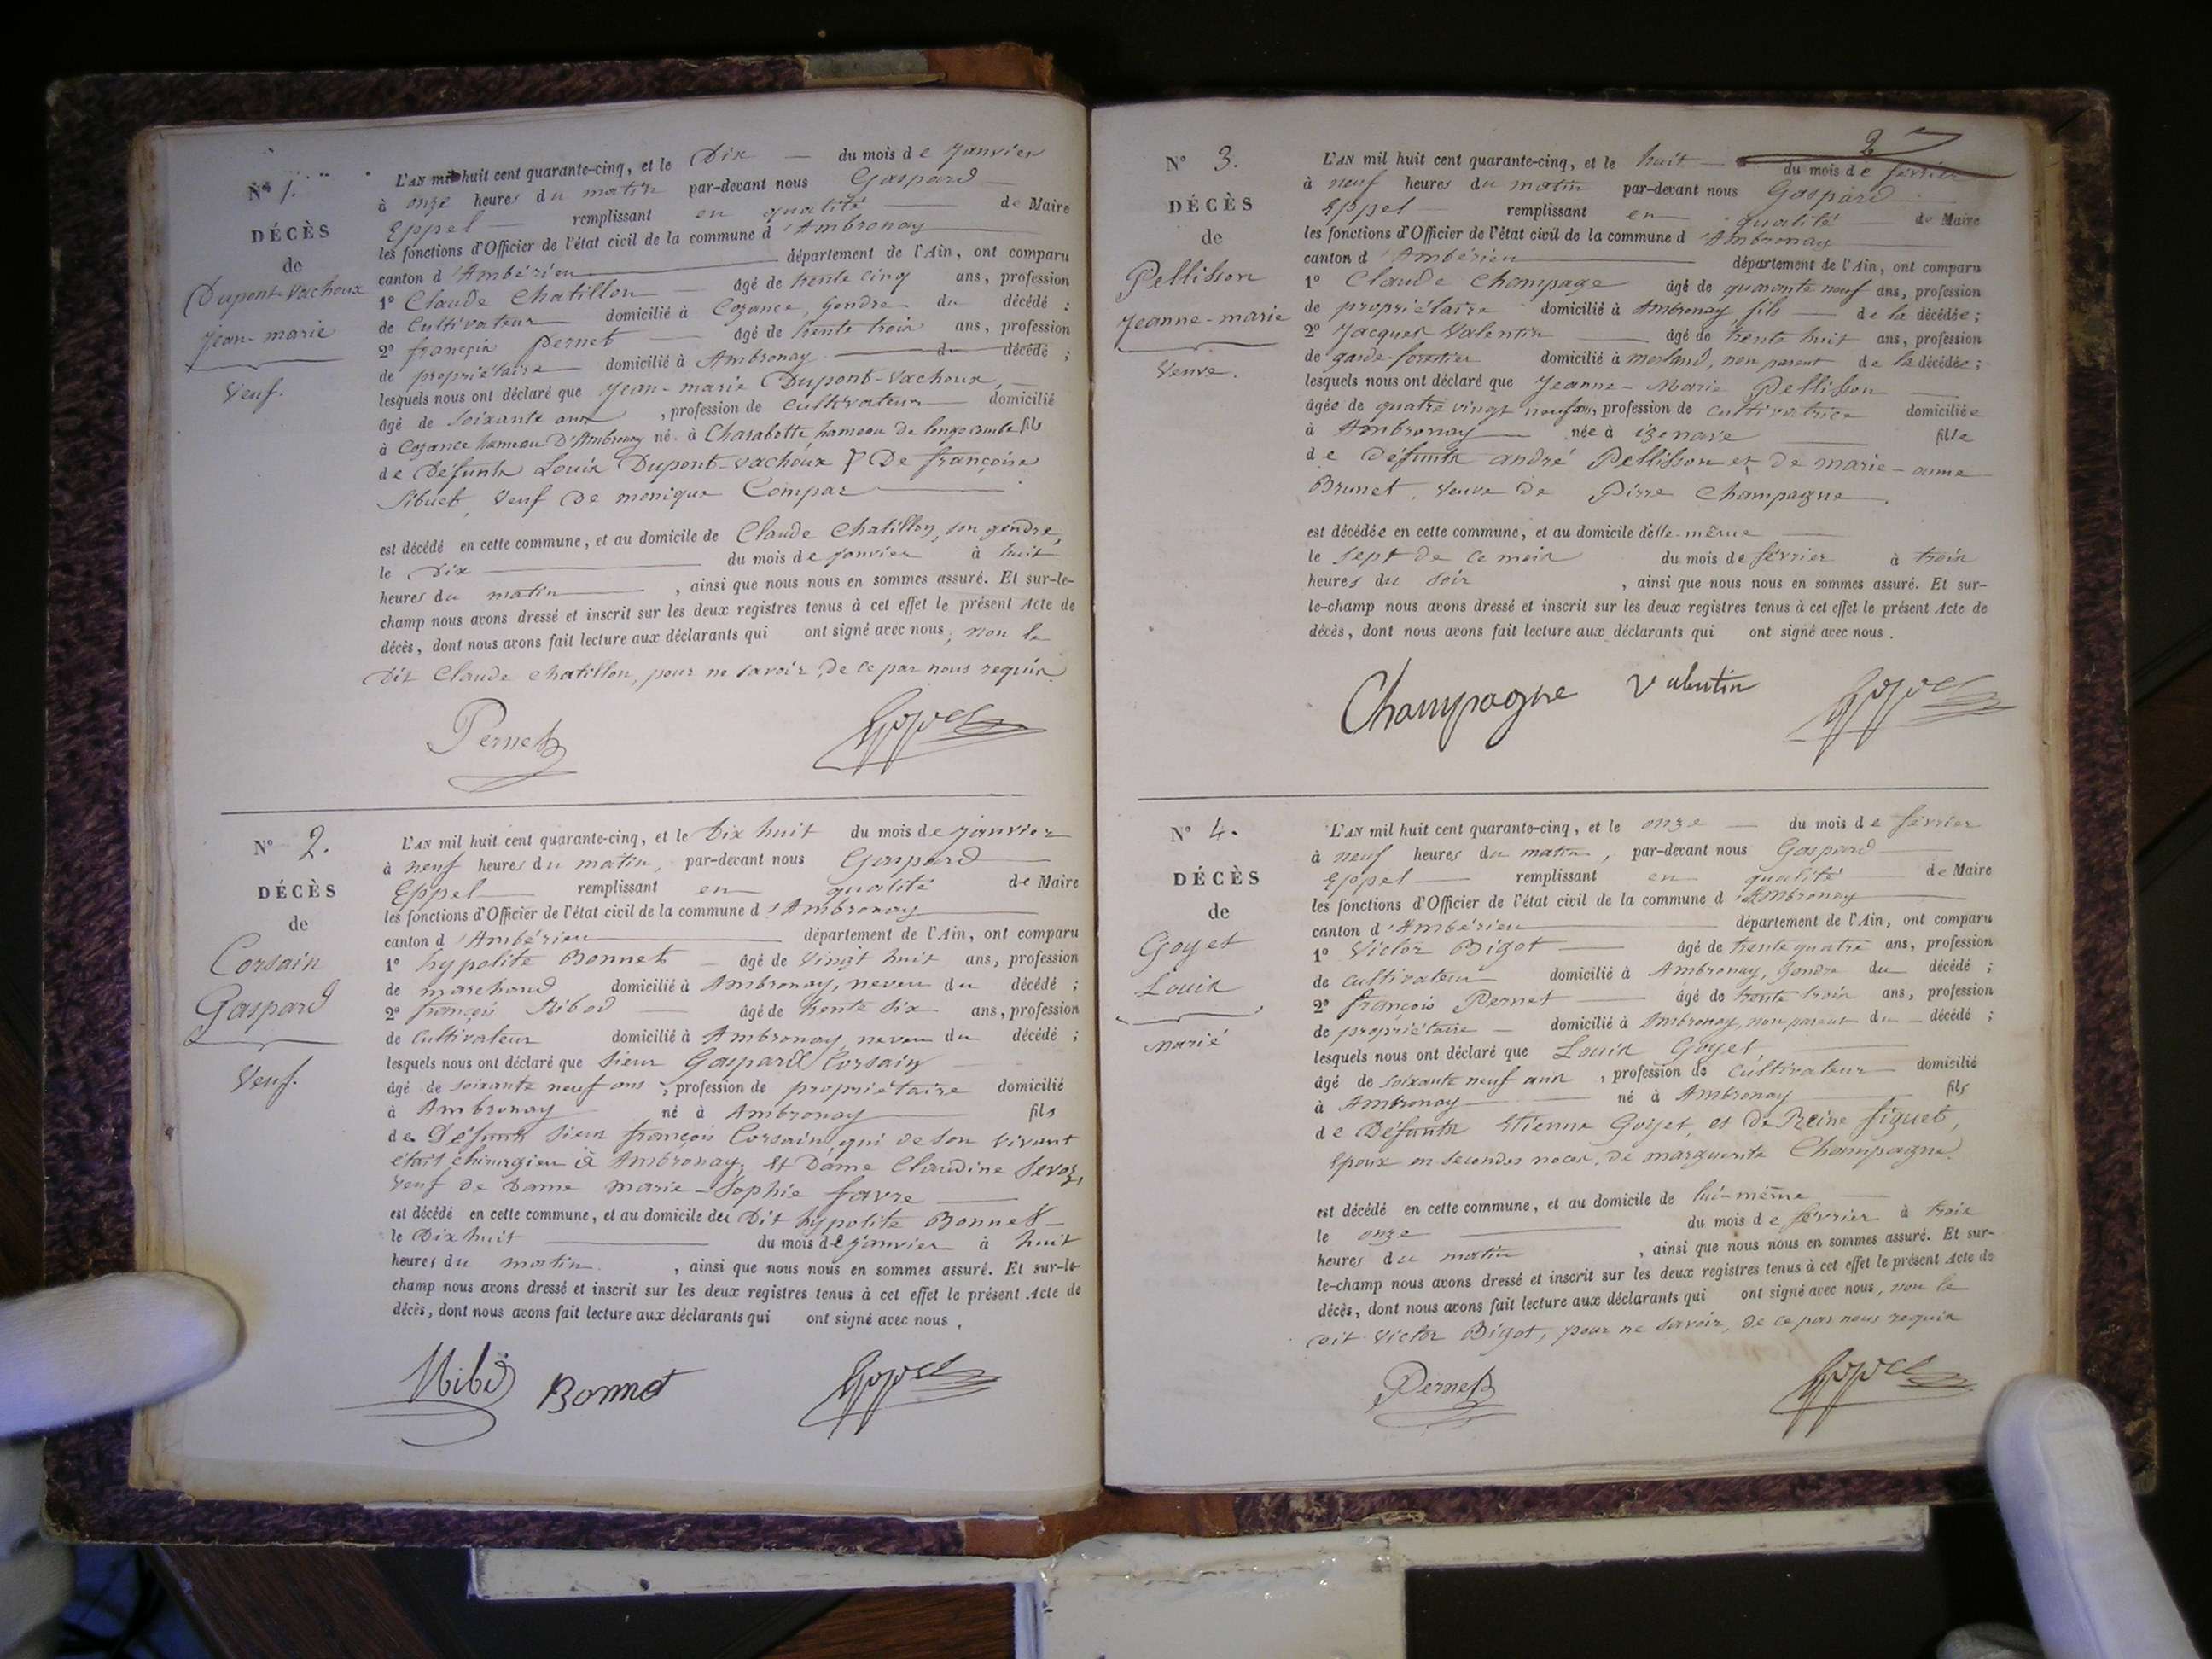 N° 1.
DÉCÈS
de
Dupont-Vachoux
jean-marie
Veuf.
L'AN mil huit cent quarante-cinq, et le Dix du mois de janvier
à onze heures du matin par-devant nous Gaspard
Eppel remplissant en qualité de Maire
les fonctions d'Officier de l'état civil de la commune d'Ambronay
canton d'Ambérieu département de l'Ain, ont comparu
1° Claude Chatillon âgé de trente cinq ans, profession
de Cultivateur domicilié à Cozance, Gendre du décédé ;
2° françois Pernet âgé de trente trois ans, profession
de propriétaire domicilié à Ambronay du décédé ;
lesquels nous ont déclaré que jean-marie Dupont-Vachoux,
âgé de soixante ans, profession de cultivateur domicilié
à Cozance hameau D'Ambronay né à Charabotte, hameau de longecombe fils
de Défunts Louis Dupont-Vachoux & De françoise
Sibuet, Veuf de monique Compar
est décédé en cette commune, et au domicile de Claude Chatillon, son gendre,
le Dix du mois de janvier à huit
heures du matin, ainsi que nous nous en sommes assuré. Et sur-le-
champ nous avons dressé et inscrit sur les deux registres tenus à cet effet le présent Acte de
décès, dont nous avons fait lecture aux déclarants qui ont signé avec nous, non le
Dit Claude chatillon, pour ne savoir, de ce par nous requis
Pernet Eppel
N° 2.
DÉCÈS
de
Corsain
Gaspard
Veuf.
L'AN mil huit cent quarante-cinq, et le Dix huit du mois de janvier
à neuf heures du matin, par-devant nous Gaspard
Eppel remplissant en qualité de Maire
les fonctions d'Officier de l'état civil de la commune d'Ambronay
canton d'Ambérieu département de l'Ain, ont comparu
1° hypolite Bonnet âgé de vingt huit ans, profession
de marchand domicilié à Ambronay, neveu du décédé ;
2° françois Ribod âgé de trente six ans, profession
de Cultivateur domicilié à Ambronay neveu du décédé ;
lesquels nous ont déclaré que sieur Gaspard Corsain
âgé de soixante neuf ans, profession de propriétaire domicilié
à Ambronay né à Ambronay fils
de Défunts sieur françois Corsain qui de son vivant
était chirurgien à Ambronay, et Dame Claudine Sevoz,
veuf de Dame marie-sophie favre
est décédé en cette commune, et au domicile du Dit hypolite Bonnet
le Dix huit du mois de janvier à huit
heures du matin, ainsi que nous nous en sommes assuré. Et sur-le-
champ nous avons dressé et inscrit sur les deux registres tenus à cet effet le présent Acte de
décès, dont nous avons fait lecture aux déclarants qui ont signé avec nous.
Ribod Bonnet Eppel
2
N° 3.
DÉCÈS
de
Pellisson
Jeanne-marie
Veuve.
L'AN mil huit cent quarante-cinq, et le huit du mois de février
à neuf heures du matin par-devant nous Gaspard
Eppel remplissant en qualité de Maire
les fonctions d'Officier de l'état civil de la commune d'Ambronay
canton d'Ambérieu département de l'Ain, ont comparu
1° Claude Champage âgé de quarante neuf ans, profession
de propriétaire domicilié à Ambronay fils de la décédée ;
2° Jacques Valentin âgé de trente huit ans, profession
de garde-forestier domicilié à morland, non parent de la décédée ;
lesquels nous ont déclaré que Jeanne-Marie Pellisson
âgée de quatre vingt neuf ans, profession de cultivatrice domiciliée
à Ambronay née à izenave fille
de Défunts andré Pellisson et de marie-anne
Brunet, Veuve de Pirre Champagne.
est décédée en cette commune, et au domicile d'elle-même
le sept de ce mois du mois de février à trois
heures du soir, ainsi que nous nous en sommes assuré. Et sur-
le-champ nous avons dressé et inscrit sur les deux registres tenus à cet effet le présent Acte de
décès, dont nous avons fait lecture aux déclarants qui ont signé avec nous.
Champagne Valentin Eppel
N° 4.
DÉCÈS
de
Goyet
Louis
marié
L'AN mil huit cent quarante-cinq, et le onze du mois de février
à neuf heures du matin, par-devant nous Gaspard
Eppel remplissant en qualité de Maire
les fonctions d'Officier de l'état civil de la commune d'Ambronay
canton d'Ambérieu département de l'Ain, ont comparu
1° Victor Bigot âgé de trente quatre ans, profession
de cultivateur domicilié à Ambronay, Gendre du décédé ;
2° françois Pernet âgé de trente trois ans, profession
de propriétaire domicilié à Ambronay, non parent du décédé ;
lesquels nous ont déclaré que Louis Goyet
âgé de soixante neuf ans, profession de cultivateur domicilié
à Ambronay né à Ambronay fils
de Défunts Etienne Goyet, et De Reine figuet,
Epoux en secondes noces, de marguerite Champagne.
est décédé en cette commune, et au domicile de lui-même
le onze du mois de février à trois
heures du matin, ainsi que nous nous en sommes assuré. Et sur-
le-champ nous avons dressé et inscrit sur les deux registres tenus à cet effet le présent Acte de
décès, dont nous avons fait lecture aux déclarants qui ont signé avec nous, non le
Dit Victor Bigot, pour ne savoir, de ce par nous requis
Pernet Eppel